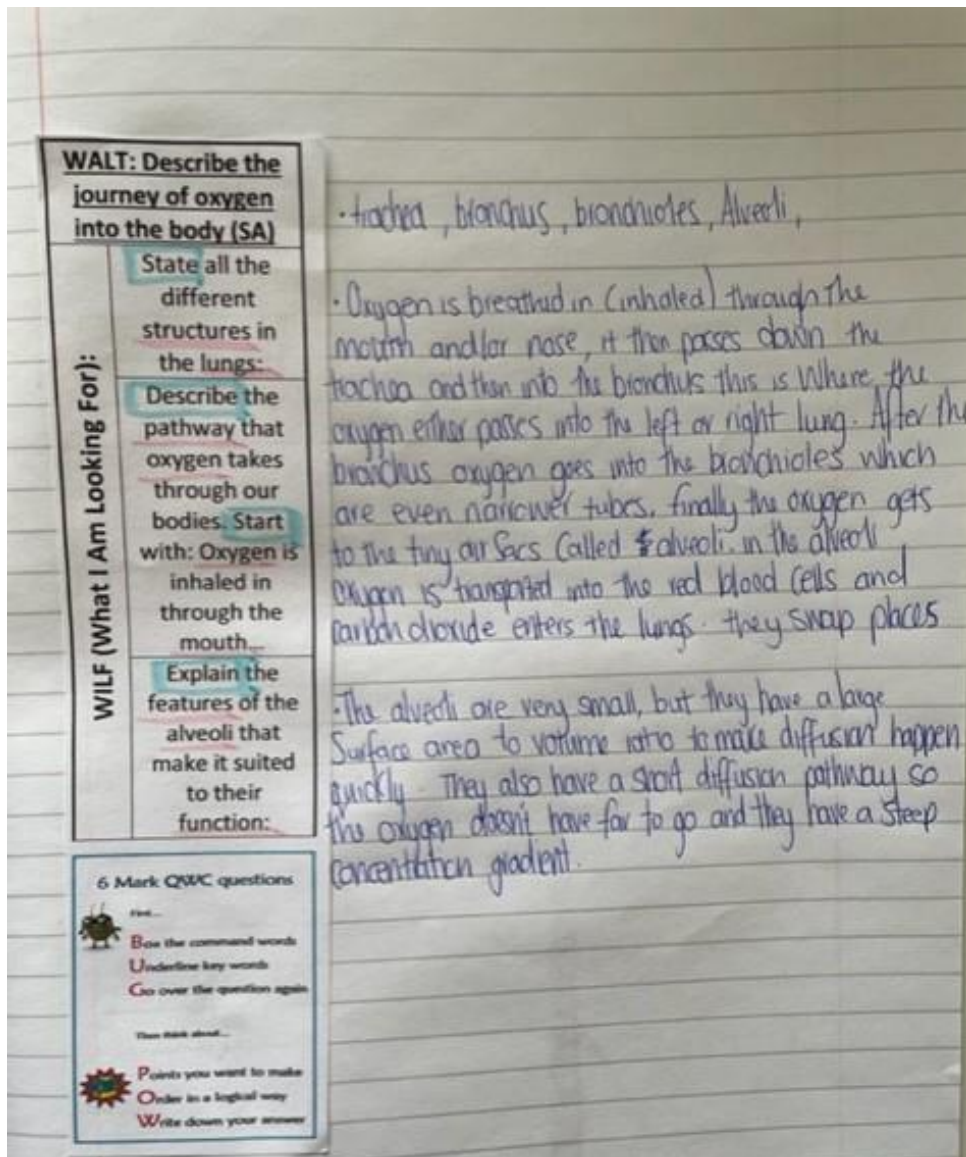 WALT: Describe the
journey of oxygen
into the body (SA)
WILF (What I Am Looking For):
State all the
different
structures in
the lungs:
Describe the
pathway that
oxygen takes
through our
bodies. Start
with: Oxygen is
inhaled in
through the
mouth...
Explain the
features of the
alveoli that
make it suited
to their
function:
6 Mark QWC questions
First...
Box the command words
Underline key words
Go over the question again
Then think about...
Points you want to make
Order in a logical way
Write down your answer
· trachea, bronchus, bronchioles, Alveoli,
· Oxygen is breathed in (inhaled) through the
mouth and/or nose, it then passes down the
trachea and then into the bronchus this is Where, the
oxygen either passes into the left or right lung. After the
bronchus oxygen goes into the bronchioles which
are even narrower tubes. finally the oxygen gets
to the tiny air Sacs Called alveoli. in the alveoli
oxygen is transported into the red blood cells and
carbon dioxide enters the lungs. they swap places
· The alveoli are very small, but they have a large
Surface area to volume ratio to make diffusion happen
quickly. They also have a short diffusion pathway so
the oxygen doesn't have far to go and they have a steep
concentration gradient.